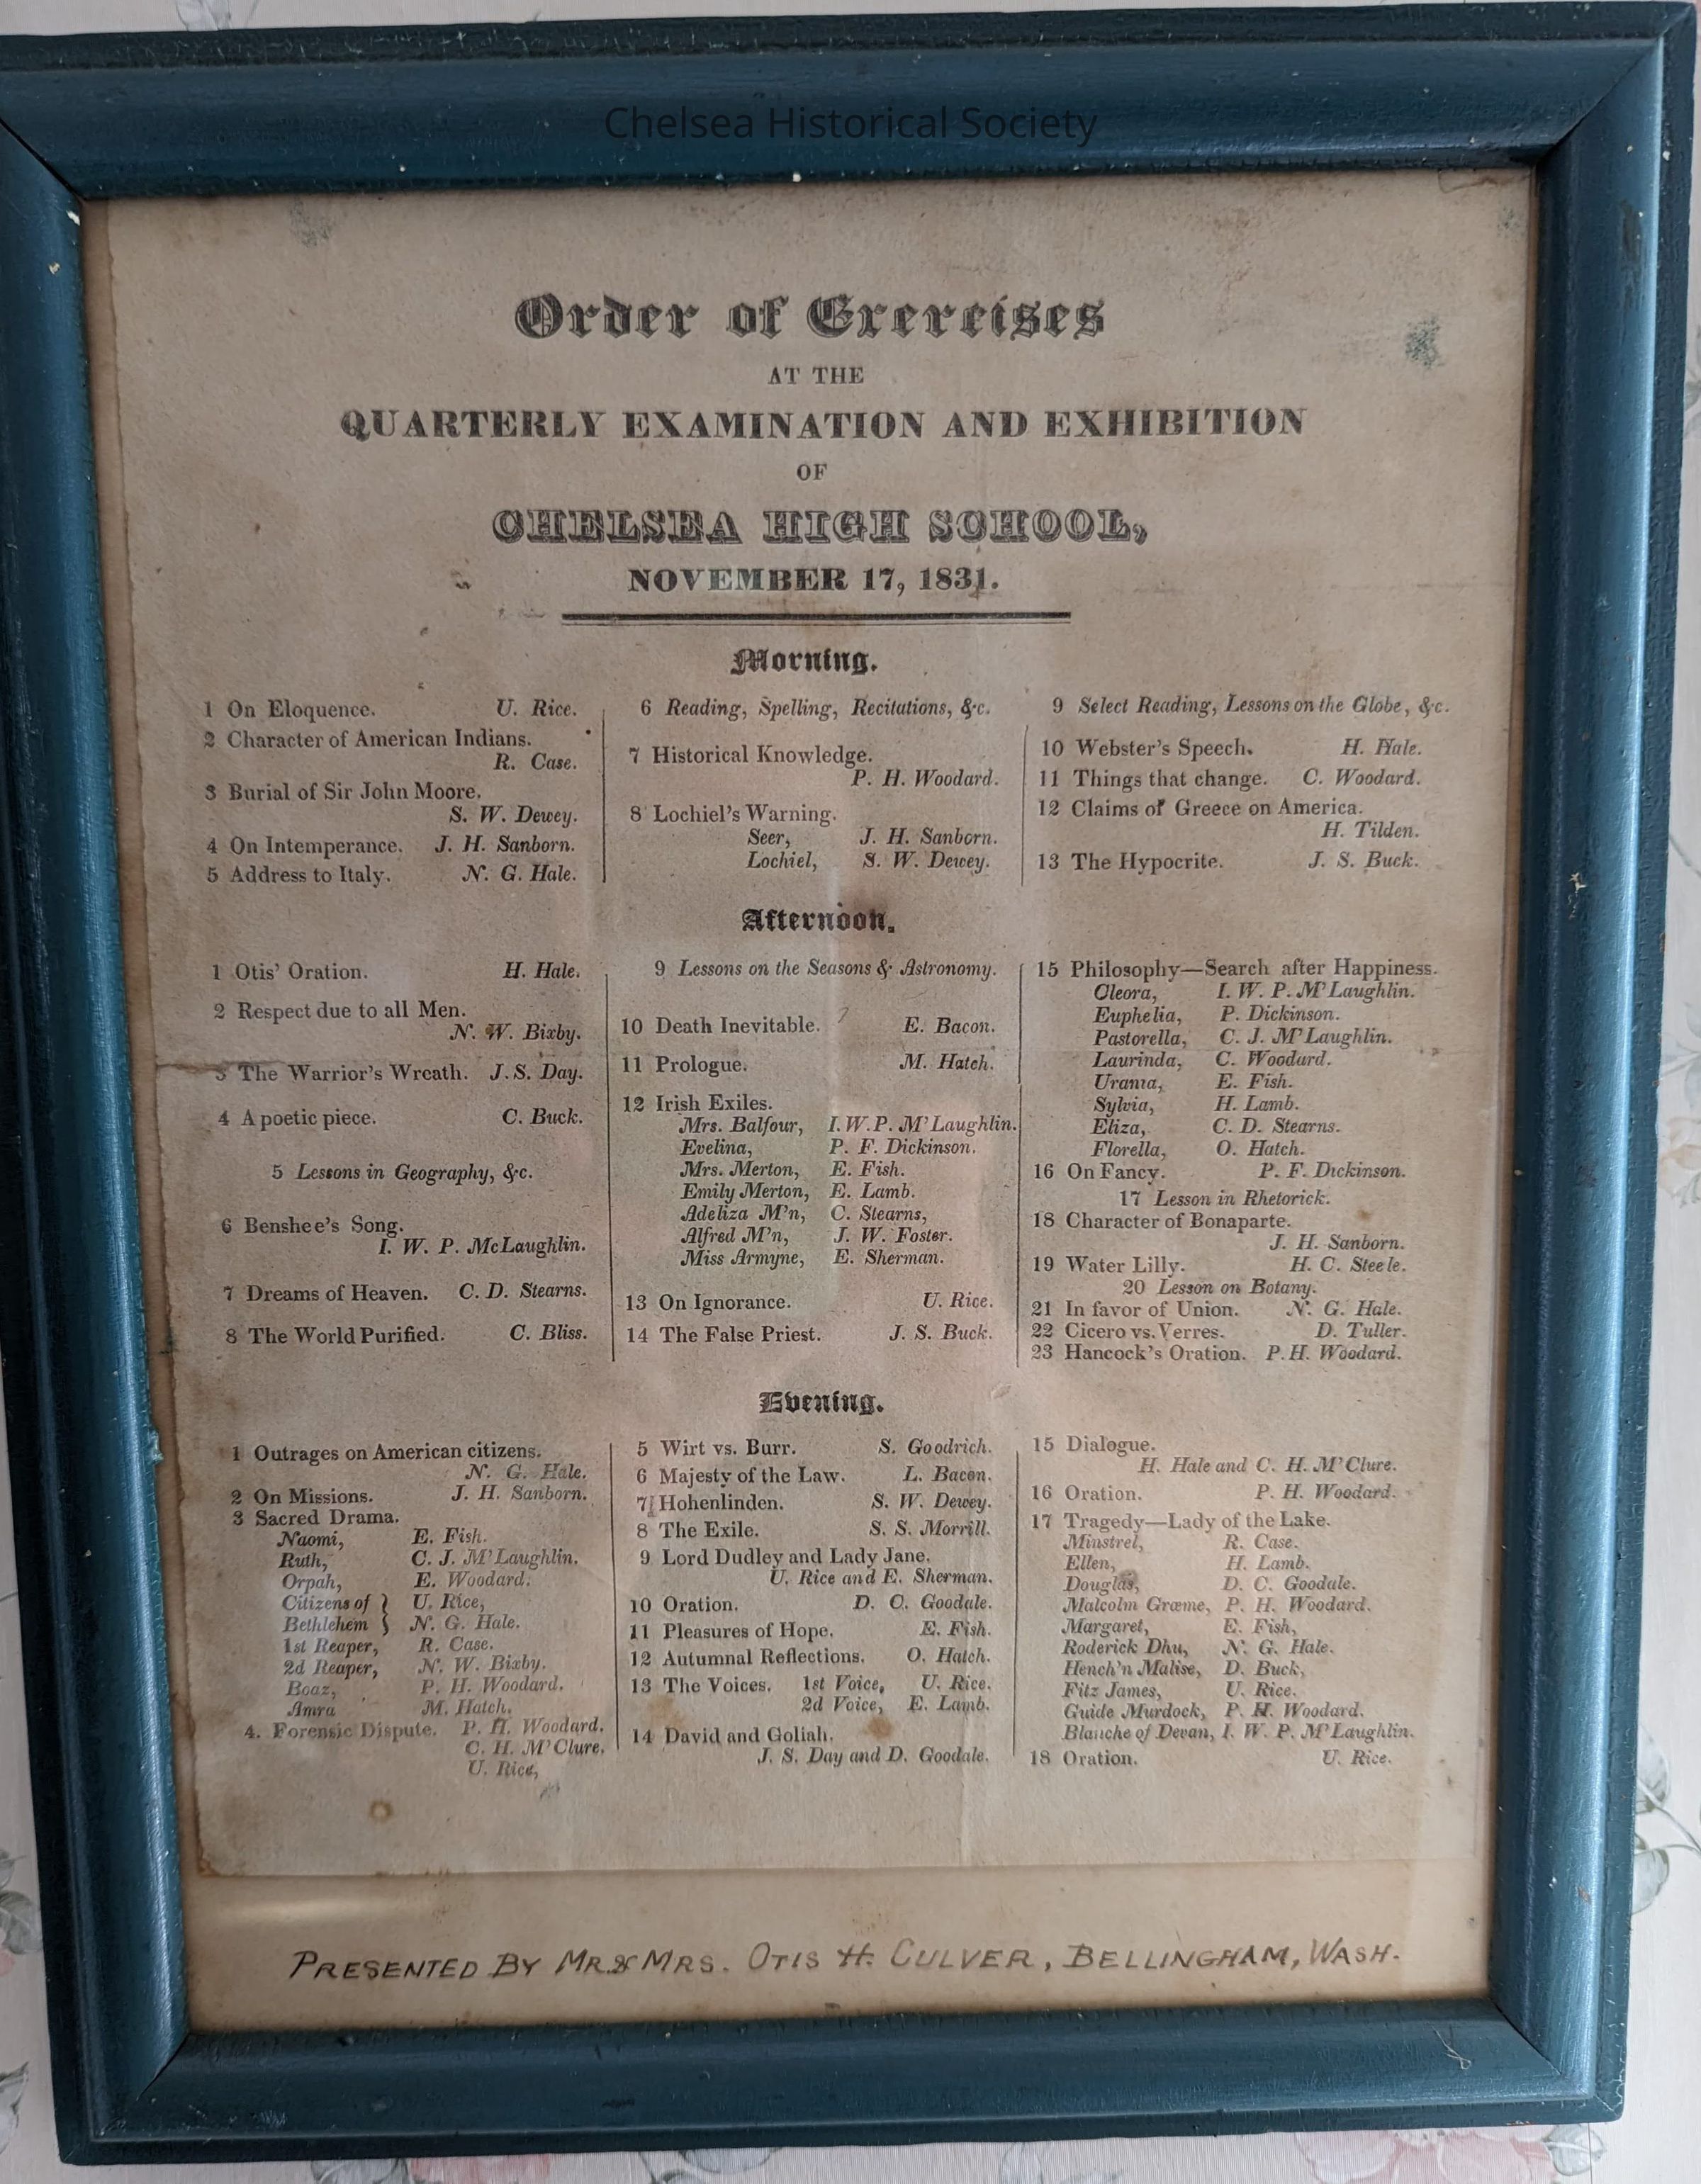 Chelsea Historical Society
Order of Exercises
AT THE
QUARTERLY EXAMINATION AND EXHIBITION
OF
CHELSEA HIGH SCHOOL,
NOVEMBER 17, 1831.
Morning.
1 On Eloquence. U. Rice.
2 Character of American Indians.
R. Case.
3 Burial of Sir John Moore.
S. W. Dewey.
4 On Intemperance. J. H. Sanborn.
5 Address to Italy. N. G. Hale.
6 Reading, Spelling, Recitations, &c.
7 Historical Knowledge.
P. H. Woodard.
8 Lochiel's Warning.
Seer, J. H. Sanborn.
Lochiel, S. W. Dewey.
9 Select Reading, Lessons on the Globe, &c.
10 Webster's Speech. H. Hale.
11 Things that change. C. Woodard.
12 Claims of Greece on America.
H. Tilden.
13 The Hypocrite. J. S. Buck.
Afternoon.
1 Otis' Oration. H. Hale.
2 Respect due to all Men.
N. W. Bixby.
3 The Warrior's Wreath. J. S. Day.
4 A poetic piece. C. Buck.
5 Lessons in Geography, &c.
6 Benshee's Song.
I. W. P. McLaughlin.
7 Dreams of Heaven. C. D. Stearns.
8 The World Purified. C. Bliss.
9 Lessons on the Seasons & Astronomy.
10 Death Inevitable. E. Bacon.
11 Prologue. M. Hatch.
12 Irish Exiles.
Mrs. Balfour, I. W. P. M'Laughlin.
Evelina, P. F. Dickinson.
Mrs. Merton, E. Fish.
Emily Merton, E. Lamb.
Adeliza M'n, C. Stearns,
Alfred M'n, J. W. Foster.
Miss Armyne, E. Sherman.
13 On Ignorance. U. Rice.
14 The False Priest. J. S. Buck.
15 Philosophy—Search after Happiness.
Cleora, I. W. P. M'Laughlin.
Euphelia, P. Dickinson.
Pastorella, C. J. M'Laughlin.
Laurinda, C. Woodard.
Urania, E. Fish.
Sylvia, H. Lamb.
Eliza, C. D. Stearns.
Florella, O. Hatch.
16 On Fancy. P. F. Dickinson.
17 Lesson in Rhetorick.
18 Character of Bonaparte.
J. H. Sanborn.
19 Water Lilly. H. C. Steele.
20 Lesson on Botany.
21 In favor of Union. N. G. Hale.
22 Cicero vs. Verres. D. Tuller.
23 Hancock's Oration. P. H. Woodard.
Evening.
1 Outrages on American citizens.
N. G. Hale.
2 On Missions. J. H. Sanborn.
3 Sacred Drama.
Naomi, E. Fish.
Ruth, C. J. M'Laughlin.
Orpah, E. Woodard.
Citizens of } U. Rice,
Bethlehem } N. G. Hale.
1st Reaper, R. Case.
2d Reaper, N. W. Bixby.
Boaz, P. H. Woodard.
Amra M. Hatch.
4. Forensic Dispute. P. H. Woodard.
C. H. M'Clure,
U. Rice,
5 Wirt vs. Burr. S. Goodrich.
6 Majesty of the Law. L. Bacon.
7 Hohenlinden. S. W. Dewey.
8 The Exile. S. S. Morrill.
9 Lord Dudley and Lady Jane.
U. Rice and E. Sherman.
10 Oration. D. C. Goodale.
11 Pleasures of Hope. E. Fish.
12 Autumnal Reflections. O. Hatch.
13 The Voices. 1st Voice, U. Rice.
2d Voice, E. Lamb.
14 David and Goliah.
J. S. Day and D. Goodale.
15 Dialogue.
H. Hale and C. H. M'Clure.
16 Oration. P. H. Woodard.
17 Tragedy—Lady of the Lake.
Minstrel, R. Case.
Ellen, H. Lamb.
Douglas, D. C. Goodale.
Malcolm Græme, P. H. Woodard.
Margaret, E. Fish,
Roderick Dhu, N. G. Hale.
Hench'n Malise, D. Buck,
Fitz James, U. Rice.
Guide Murdock, P. H. Woodard.
Blanche of Devan, I. W. P. M'Laughlin.
18 Oration. U. Rice.
PRESENTED BY MR. & MRS. OTIS H. CULVER, BELLINGHAM, WASH.